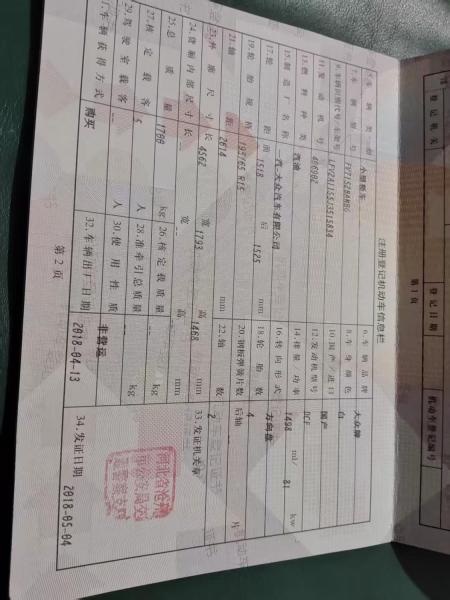 注册登记机动车信息栏
5.车辆类型 小型轿车 6.车辆品牌 大众牌
7.车辆型号 FV7152BAMBG 8.车身颜色 白
9.车辆识别代号/车架号 LFV2A1155J3515834 10.国产/进口 国产
11.发动机号 406902 12.发动机型号 DCF
13.燃料种类 汽油 14.排量/功率 1498 ml/ 81 kw
15.制造厂名称 一汽-大众汽车有限公司 16.转向形式 方向盘
17.轮距 前 1518 后 1525 mm 18.轮胎数 4
19.轮胎规格 195/65 R15 20.钢板弹簧片数 后轴 片
21.轴距 2614 mm 22.轴数 2
23.外廓尺寸 长 4562 宽 1793 高 1468 mm
24.货箱内部尺寸 长 -- 宽 -- 高 -- mm
33.发证机关章
25.总质量 1700 kg 26.核定载质量 -- kg
27.核定载客 5 人 28.准牵引总质量 -- kg
29.驾驶室载客 -- 人 30.使用性质 非营运
获得方式 购买 32.车辆出厂日期 2018-04-13
34.发证日期 2018-05-04
第2页
登记机关
登记日期
机动车登记编号
第1页